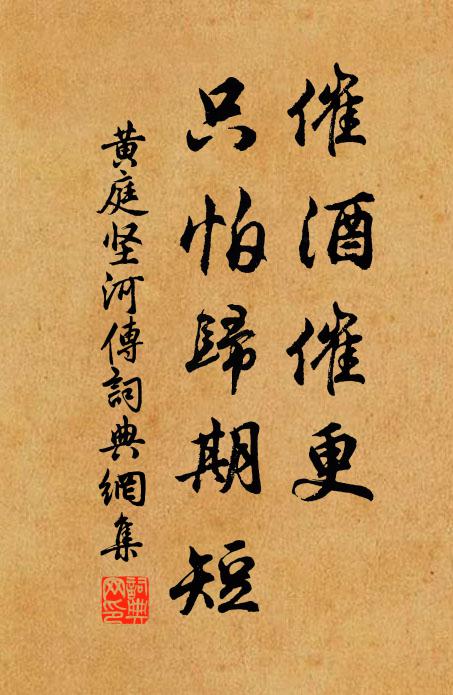 催酒催更
只怕歸期短
黃庭坚河傳詞典網集
詞典網印